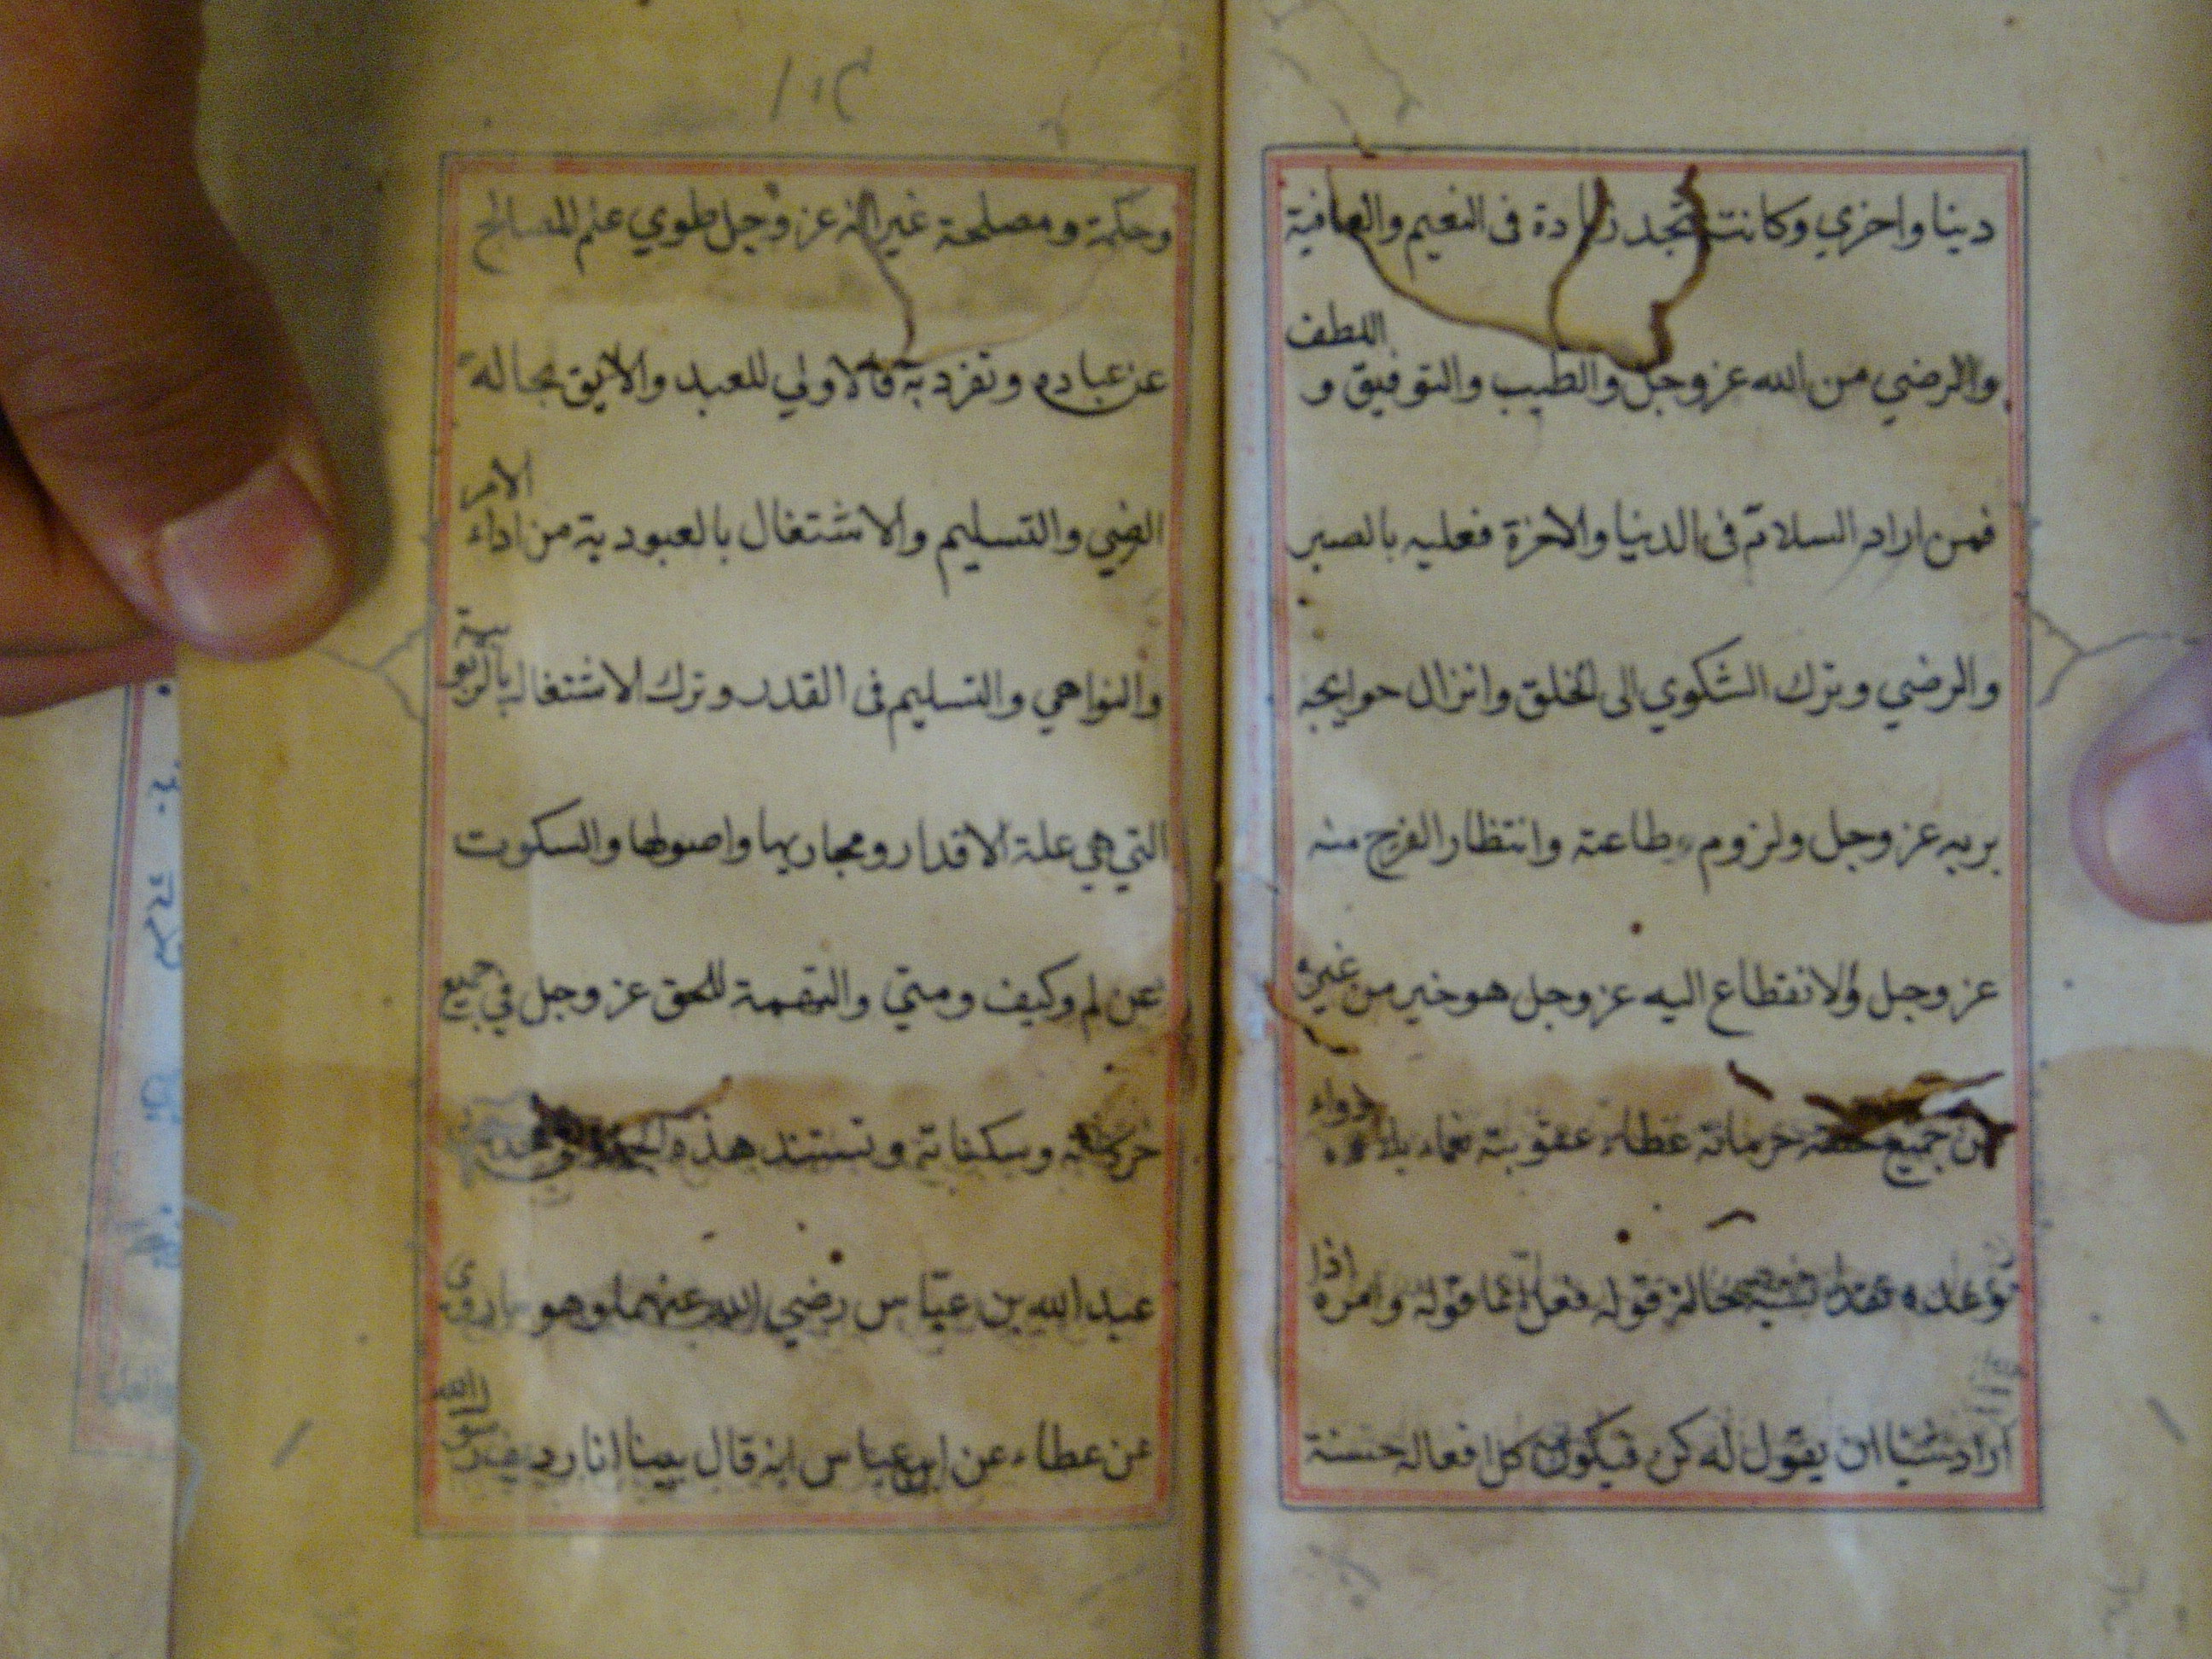 دينا واخري وكانت تجد زيادة فى النعيم والعافية
والرضي من الله عز وجل والطيب والتوفيق و اللطف
فمن اراد السلامة فى الدنيا والاخرة فعليه بالصبر
والرضي وترك الشكوي الى الخلق وانزال حوايجه
بربه عز وجل ولزوم طاعته وانتظار الفرج منه
عز وجل والانقطاع اليه عز وجل هو خير من غيره
من جميع خلقه حرمانه عطاء عقوبته نعماء بلاءه دواء
وعده نقد قوله فعل انما قوله وامره اذا
اراد شيئا ان يقول له كن فيكون كل افعاله حسنة
وحكمة ومصلحة غير انه عز وجل طوي علم المصالح
عن عباده وتفرد به فالاولي للعبد والاليق بحاله
الرضي والتسليم والاشتغال بالعبودية من اداء الامر
والنواهي والتسليم فى القدر وترك الاشتغال بالربوبية
التي هي علة الاقدار ومجاريها واصولها والسكوت
عن لم وكيف ومتي والتهمة للحق عز وجل في جميع
حركاته وسكناته وتستند هذه
عبد الله بن عباس رضي الله عنهما وهو ما روى
عن عطاء عن ابن عباس انه قال بينا انا رديف رسول الله